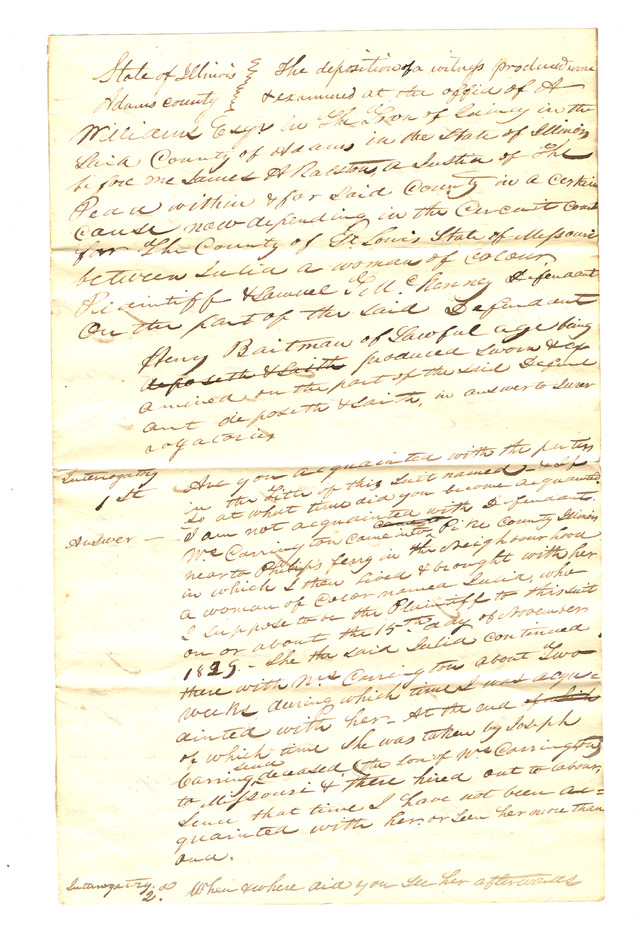 State of Illinois } The deposition of a witness produced sworn
Adams county } & examined at the office of A
Williams Esqr in The Town of Quincy in the
Said County of Adams in the State of Illinois
before me James H Ralston, a Justice of The
Peace within & for Said County in a certain
cause now depending in the Circuit court
for The County of St Louis State of Missouri
between Julia a woman of colour,
Plaintiff & Samuel T McKenney Defendant
On the part of the said Defendant
Henry Baitman of Lawful age being
deposeth & Saith produced Sworn & ex
amined on the part of the said Defend
ant deposeth & Saith, in answer to Inter
rogatories
Interrogatory Are you acquainted with the parties
1st in the title of this Suit named - & if
So at what time did you become acquainted
Answer — I am not acquainted with Defendant.
Mrs Carrington came into Pike County Illinois
near to Philips ferry in the Neighbourhood
in which I then lived & brought with her
a woman of Color named Julia, who
I suppose to be the Plaintiff to this suit
on or about the 15th day of November
1829 - She the said Julia continued
there with Mrs Carrington about Two
weeks during which time I was acqu-
ainted with her. At the end of
of which time she was taken by Joseph
Carrington since deceased (the son of Mrs Carrington)
to Missouri & there hired out to labour,
Since that time I have not been ac=
quainted with her. or Seen her more than
once.
Interrogatory 2.d When & where did you See her afterwards